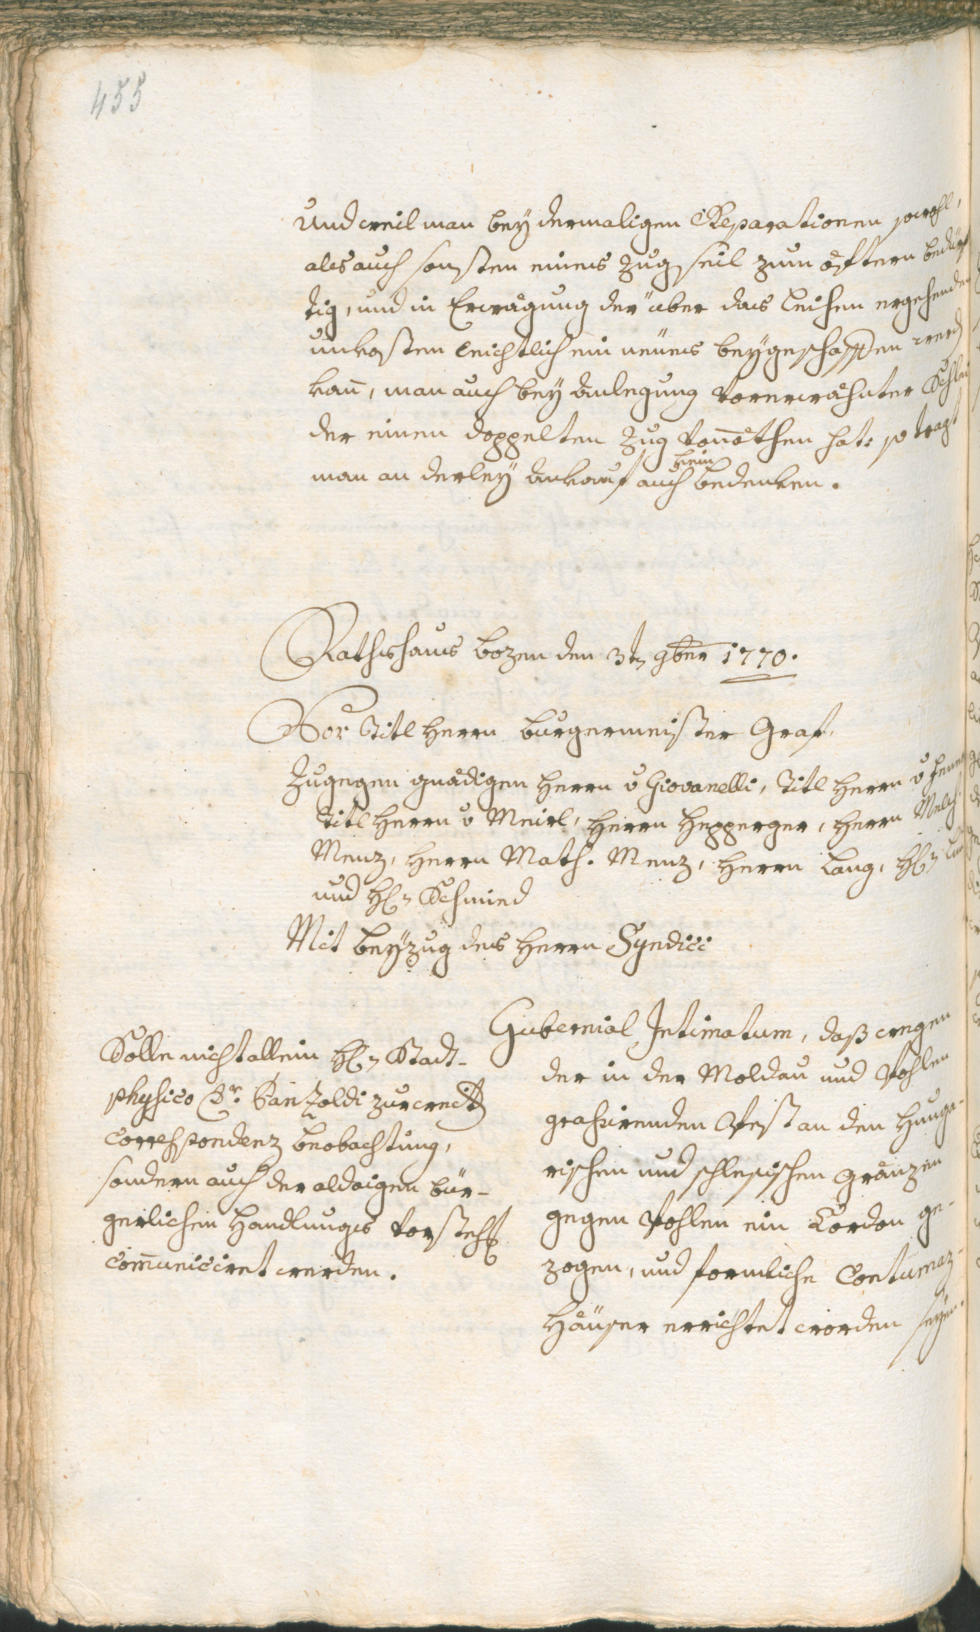 455
Und weil man bey dermaligen Reparationen sowohl,
als auch sonsten eines Zug seil zum öftern bedürf
tig, und in Erwägung der über das leihen ergehenden
unkosten leichtlich ein neues beygeschaffen werden
kañ, man auch bey Anlegung vorerwähnter Schlei
der einen doppelten Zug voñöthen hat: so tragt
man an derley Ankauf auch kein bedenken.
Rathshaus bozen den 3t 9ber 1770.
Vor Titl Herrn burgermeister Graf.
Zugegen gnädigen Herrn v Giovanelli, Titl Herrn v
Titl Herrn v Meirl, Herrn Hepperger, Herrn Melch.
Menz, Herrn Math. Menz, Herrn Lang, H
und H Schmied
Mit beyzug des Herrn Syndici
Gubernial Intimatum, daß wegen
der in der Moldau und Pohlen
grassirenden Pest an den Hunga-
rischen und schlesischen gränzen
gegen Pohlen ein Cordon ge-
zogen, und formliche Contumaz-
Häuser errichtet worden seyen.
Solle nicht allein H Stadt-
physico Dr. Panzoldi zur
Correspondenz beobachtung,
sondern auch der aldaigen bür-
gerlichen Handlungs vorsteh
com̃uniciret werden.